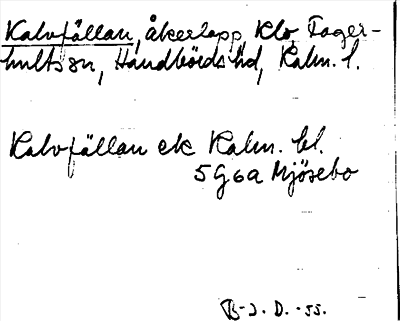 Kalvfällan, åkerlapp Klo Fager-
hults sn, Handbörds hd, Kalm. l.
Kalvfällan ek Kalm. bl.
5G6a Mjösebo
D. -55.